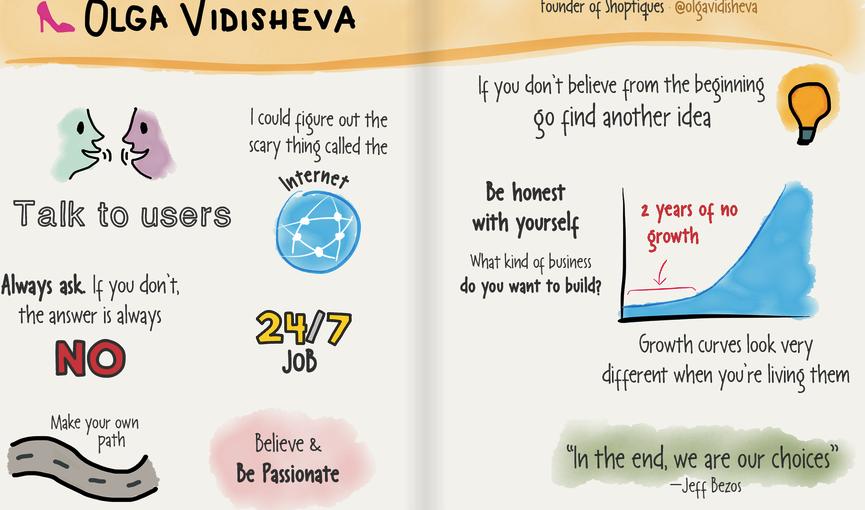 OLGA VIDISHEVA
founder of Shoptiques · @olgavidisheva
Talk to users
I could figure out the
scary thing called the
Internet
Always ask. If you don't,
the answer is always
NO
24/7
JOB
Make your own
path
Believe &
Be Passionate
If you don't believe from the beginning
go find another idea
Be honest
with yourself
What kind of business
do you want to build?
2 years of no
growth
Growth curves look very
different when you're living them
"In the end, we are our choices"
—Jeff Bezos